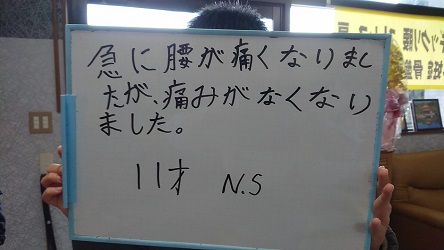 急に腰が痛くなりまし
たが、痛みがなくなり
ました。
11才 N.S